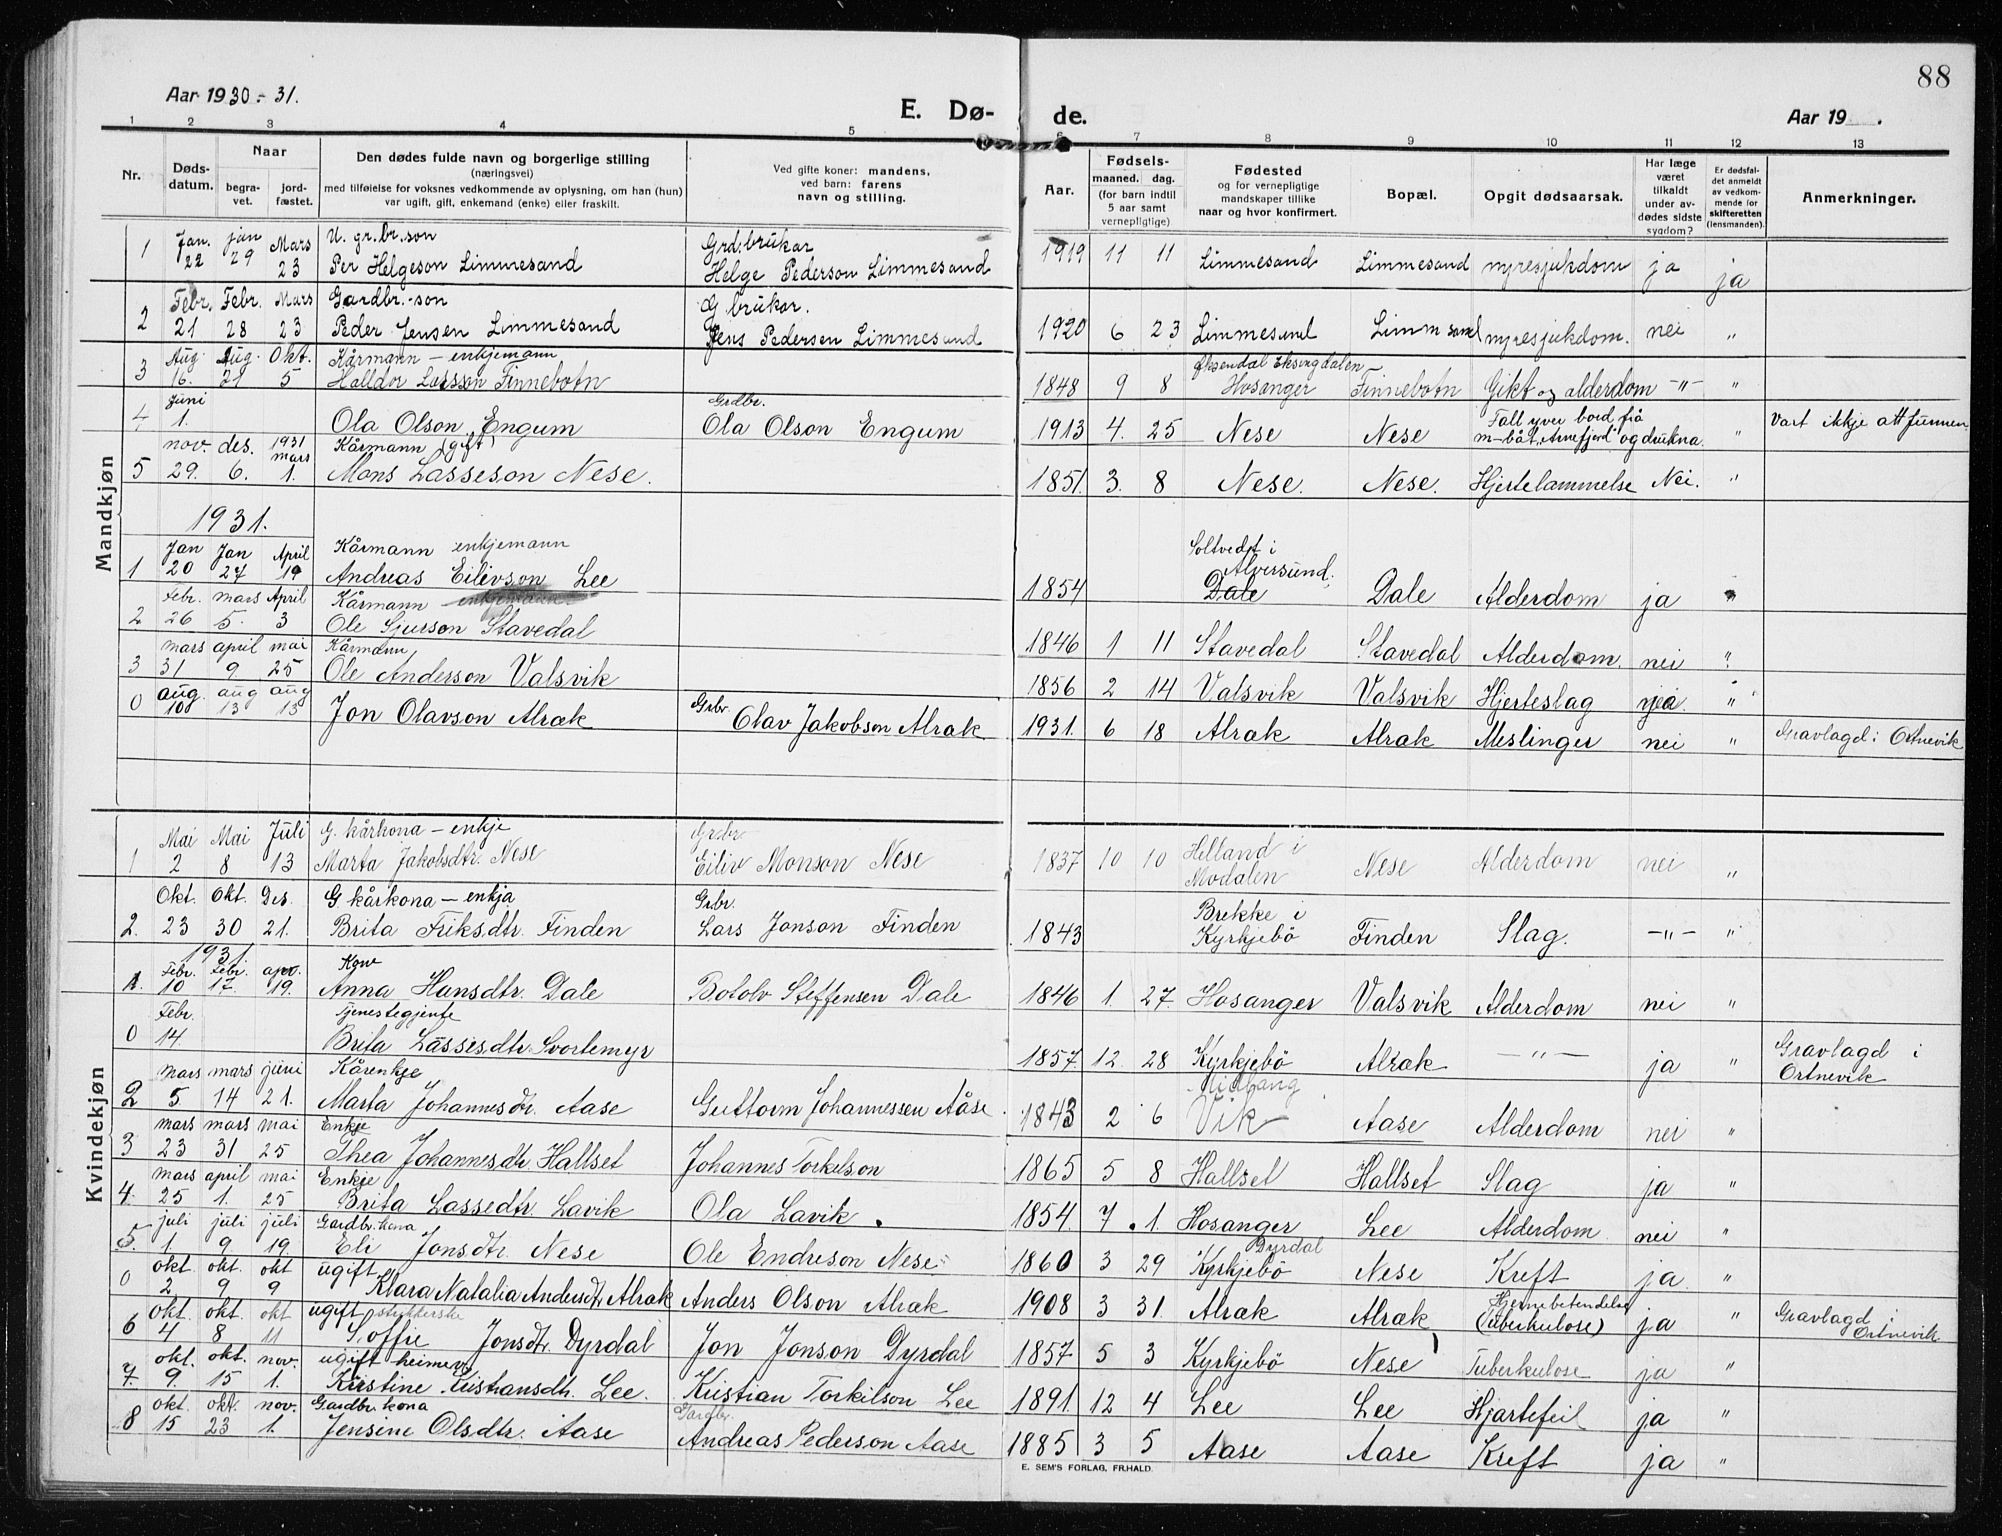 88
Aar 1930-31.
E. Dø- de.
Aar 19 .
1 2 3 4 5 6 7 8 9 10 11 12 13
Nr.
Døds-
datum.
Naar
begra-
vet.
jord-
fæstet.
Den dødes fulde navn og borgerlige stilling
(næringsvei)
med tilføielse for voksnes vedkommende av oplysning, om han (hun)
var ugift, gift, enkemand (enke) eller fraskilt.
Ved gifte koner: mandens,
ved barn: farens
navn og stilling.
Aar.
Fødsels-
maaned. dag.
(for barn indtil
5 aar samt
vernepligtige)
Fødested
og for vernepligtige
mandskaper tillike
naar og hvor konfirmert.
Bopæl.
Opgit dødsaarsak.
Har læge
været
tilkaldt
under av-
dødes sidste
sygdom?
Er dødsfal-
det anmeldt
av vedkom-
mende for
skifteretten
(lensmanden).
Anmerkninger.
Mandkjøn
Jan. jan Mars U. gr.br.son Grd.brukar
1 22 29 23 Per Helgeson Limmesand Helge Pederson Limmesand 1919 11 11 Limmesand Limmesand nyresjukdom ja ja
Febr. Febr. Mars Gardbr.-son G.brukar.
2 21 28 23 Peder Jensen Limmesand Jens Pedersen Limmesand 1920 6 23 Limmesand Limmesand nyresjukdom. nei "
Aug. Aug. Okt. Kårmann - enkjemann Eksingdalen
3 16. 21 5 Halldor Lasson Finnebotn 1848 9 8 Hosanger Finnebotn Gikt og alderdom -"- "
Juni Grdbr. Fall yver bord frå
4 1. Ola Olson Engum Ola Olson Engum 1913 4. 25 Nese Nese m-båt "Arnefjord" og drukna. " Vart ikkje attfunnen
nov. des. 1931 mars Kårmann (gift)
5 29. 6. 1. Mons Lasseson Nese. 1851. 3. 8 Nese. Nese. Hjertelammelse Nei. "
1931.
Jan Jan April Kårmann enkjemann Soltvedt i Alversund.
1 20 27 19 Andreas Eilivson Lee 1854 Dale Dale Alderdom ja "
Febr. mars April Kårmann enkjemann
2 26 5. 3 Ole Sjurson Stavedal 1846 1 11 Stavedal Stavedal Alderdom. nei "
mars april mai Kårmann
3 31 9 25 Ole Anderson Valsvik 1856 2 14 Valsvik Valsvik Hjerteslag "
aug. aug aug Grbr.
0 10 13 13 Jon Olavson Alræk Olav Jakobson Alræk 1931. 6 18 Alræk Alræk Meslinger nei " Gravlagd i Ortnevik
Kvindekjøn
Mai Mai Juli G. kårkona - enkje Grdbr Helland i
1 2 8 13 Marta Jakobsdtr. Nese Eiliv Monson Nese 1837 10 10 Modalen Nese Alderdom nei "
Okt. Okt. Des. G. kårkona - enkja Grbr. Brekke i
2. 23 30 21. Brita Eriksdtr. Finden Lars Jonson Finden 1843 Kyrkjebö Finden Slag. -"- "
1931.
Febr. Febr. apr. Kone
1. 10 17. 19. Anna Hansdtr. Dale Botolv Steffensen Dale 1846 1. 27. Hosanger Valsvik Alderdom nei "
Febr. Tjenestegjente
0 14. Brita Lassesdtr. Svortemyr 1857. 12. 28 Kyrkjebö Alræk -"- ja " Gravlagd i Ortnevik
mars mars juni Kårenkje
2 5 14 21. Marta Johannesdtr. Aase Guttorm Johannessen Aase 1843 2 6 Vik Aase Alderdom nei "
mars mars mai Enkje
3 23 31 25 Thea Johannesdtr. Hallset Johannes Torkelson 1865 5 8 Hallset Hallset Slag ja "
mars april mai Enkje
4. 25 1. 25 Brita Lassedtr. Lavik Ola Lavik. 1854. 7. 1. Hosanger Lee Alderdom nei "
juli juli juli Gardbr.kona Dyrdal
5. 1 9 19. Eli Jonsdtr. Nese Ole Endreson Nese 1860 3 29 Kyrkjebö Nese Kreft ja. "
okt okt. okt ugift Hjernebetendelse
0 2 9 9 Klara Natalia Andersdtr Alræk Anders Olson Alræk 1908 3 31. Alræk Alræk (Tuberkulose) ja " Gravlagd i Ortnevik
okt. okt. okt ugift
6 4 8 11 Soffie Jonsdtr. Dyrdal Jon Jonson Dyrdal 1857 5 3 Kyrkjebö Nese Tuberkulose ja "
okt. okt. nov. ugift heimev.
7. 9. 15 1. Kristine Kristiansdtr. Lee. Kristian Torkilson Lee 1891. 12 4 Lee Lee Hjartefeil ja "
okt. okt. nov. Gardbr.kona Gardbr.
8 15 23 1. Jensine Olsdtr. Aase Andreas Pederson Aase 1885 3 5 Aase Aase Kreft ja "
E. SEM'S FORLAG, FR.HALD.